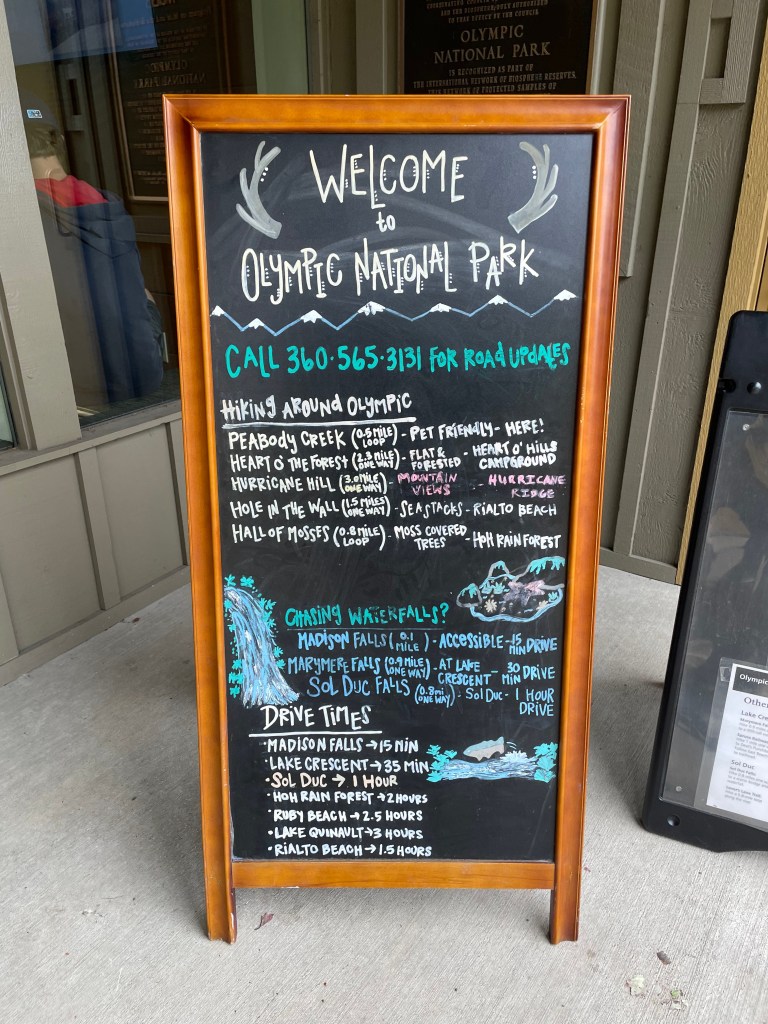 OLYMPIC
NATIONAL PARK
IS RECOGNIZED AS PART OF
THE INTERNATIONAL NETWORK OF BIOSPHERE RESERVES
WELCOME
to
OLYMPIC NATIONAL PARK
CALL 360·565·3131 FOR ROAD UPDATES
HIKING AROUND OLYMPIC
PEABODY CREEK (0.5 MILE LOOP) - PET FRIENDLY - HERE!
HEART O' THE FOREST (2.3 MILE ONE WAY) - FLAT & FORESTED - HEART O' HILLS CAMPGROUND
HURRICANE HILL (3.0 MILE ONE WAY) - MOUNTAIN VIEWS HURRICANE RIDGE
HOLE IN THE WALL (1.5 MILES ONE WAY) - SEASTACKS - RIALTO BEACH
HALL OF MOSSES (0.8 MILE LOOP) - MOSS COVERED TREES - HOH RAIN FOREST
CHASING WATERFALLS?
MADISON FALLS (0.1 MILE) - ACCESSIBLE - 15 MIN DRIVE
MARYMERE FALLS (0.9 MILE ONE WAY) - AT LAKE CRESCENT - 30 MIN DRIVE
SOL DUC FALLS (0.8 mi ONE WAY) - SOL DUC - 1 HOUR DRIVE
DRIVE TIMES
·MADISON FALLS → 15 MIN
·LAKE CRESCENT → 35 MIN
·SOL DUC → 1 HOUR
·HOH RAIN FOREST → 2 HOURS
·RUBY BEACH → 2.5 HOURS
·LAKE QUINAULT → 3 HOURS
·RIALTO BEACH → 1.5 HOURS
Olympic
Othe
Lake Cre
Sol Duc